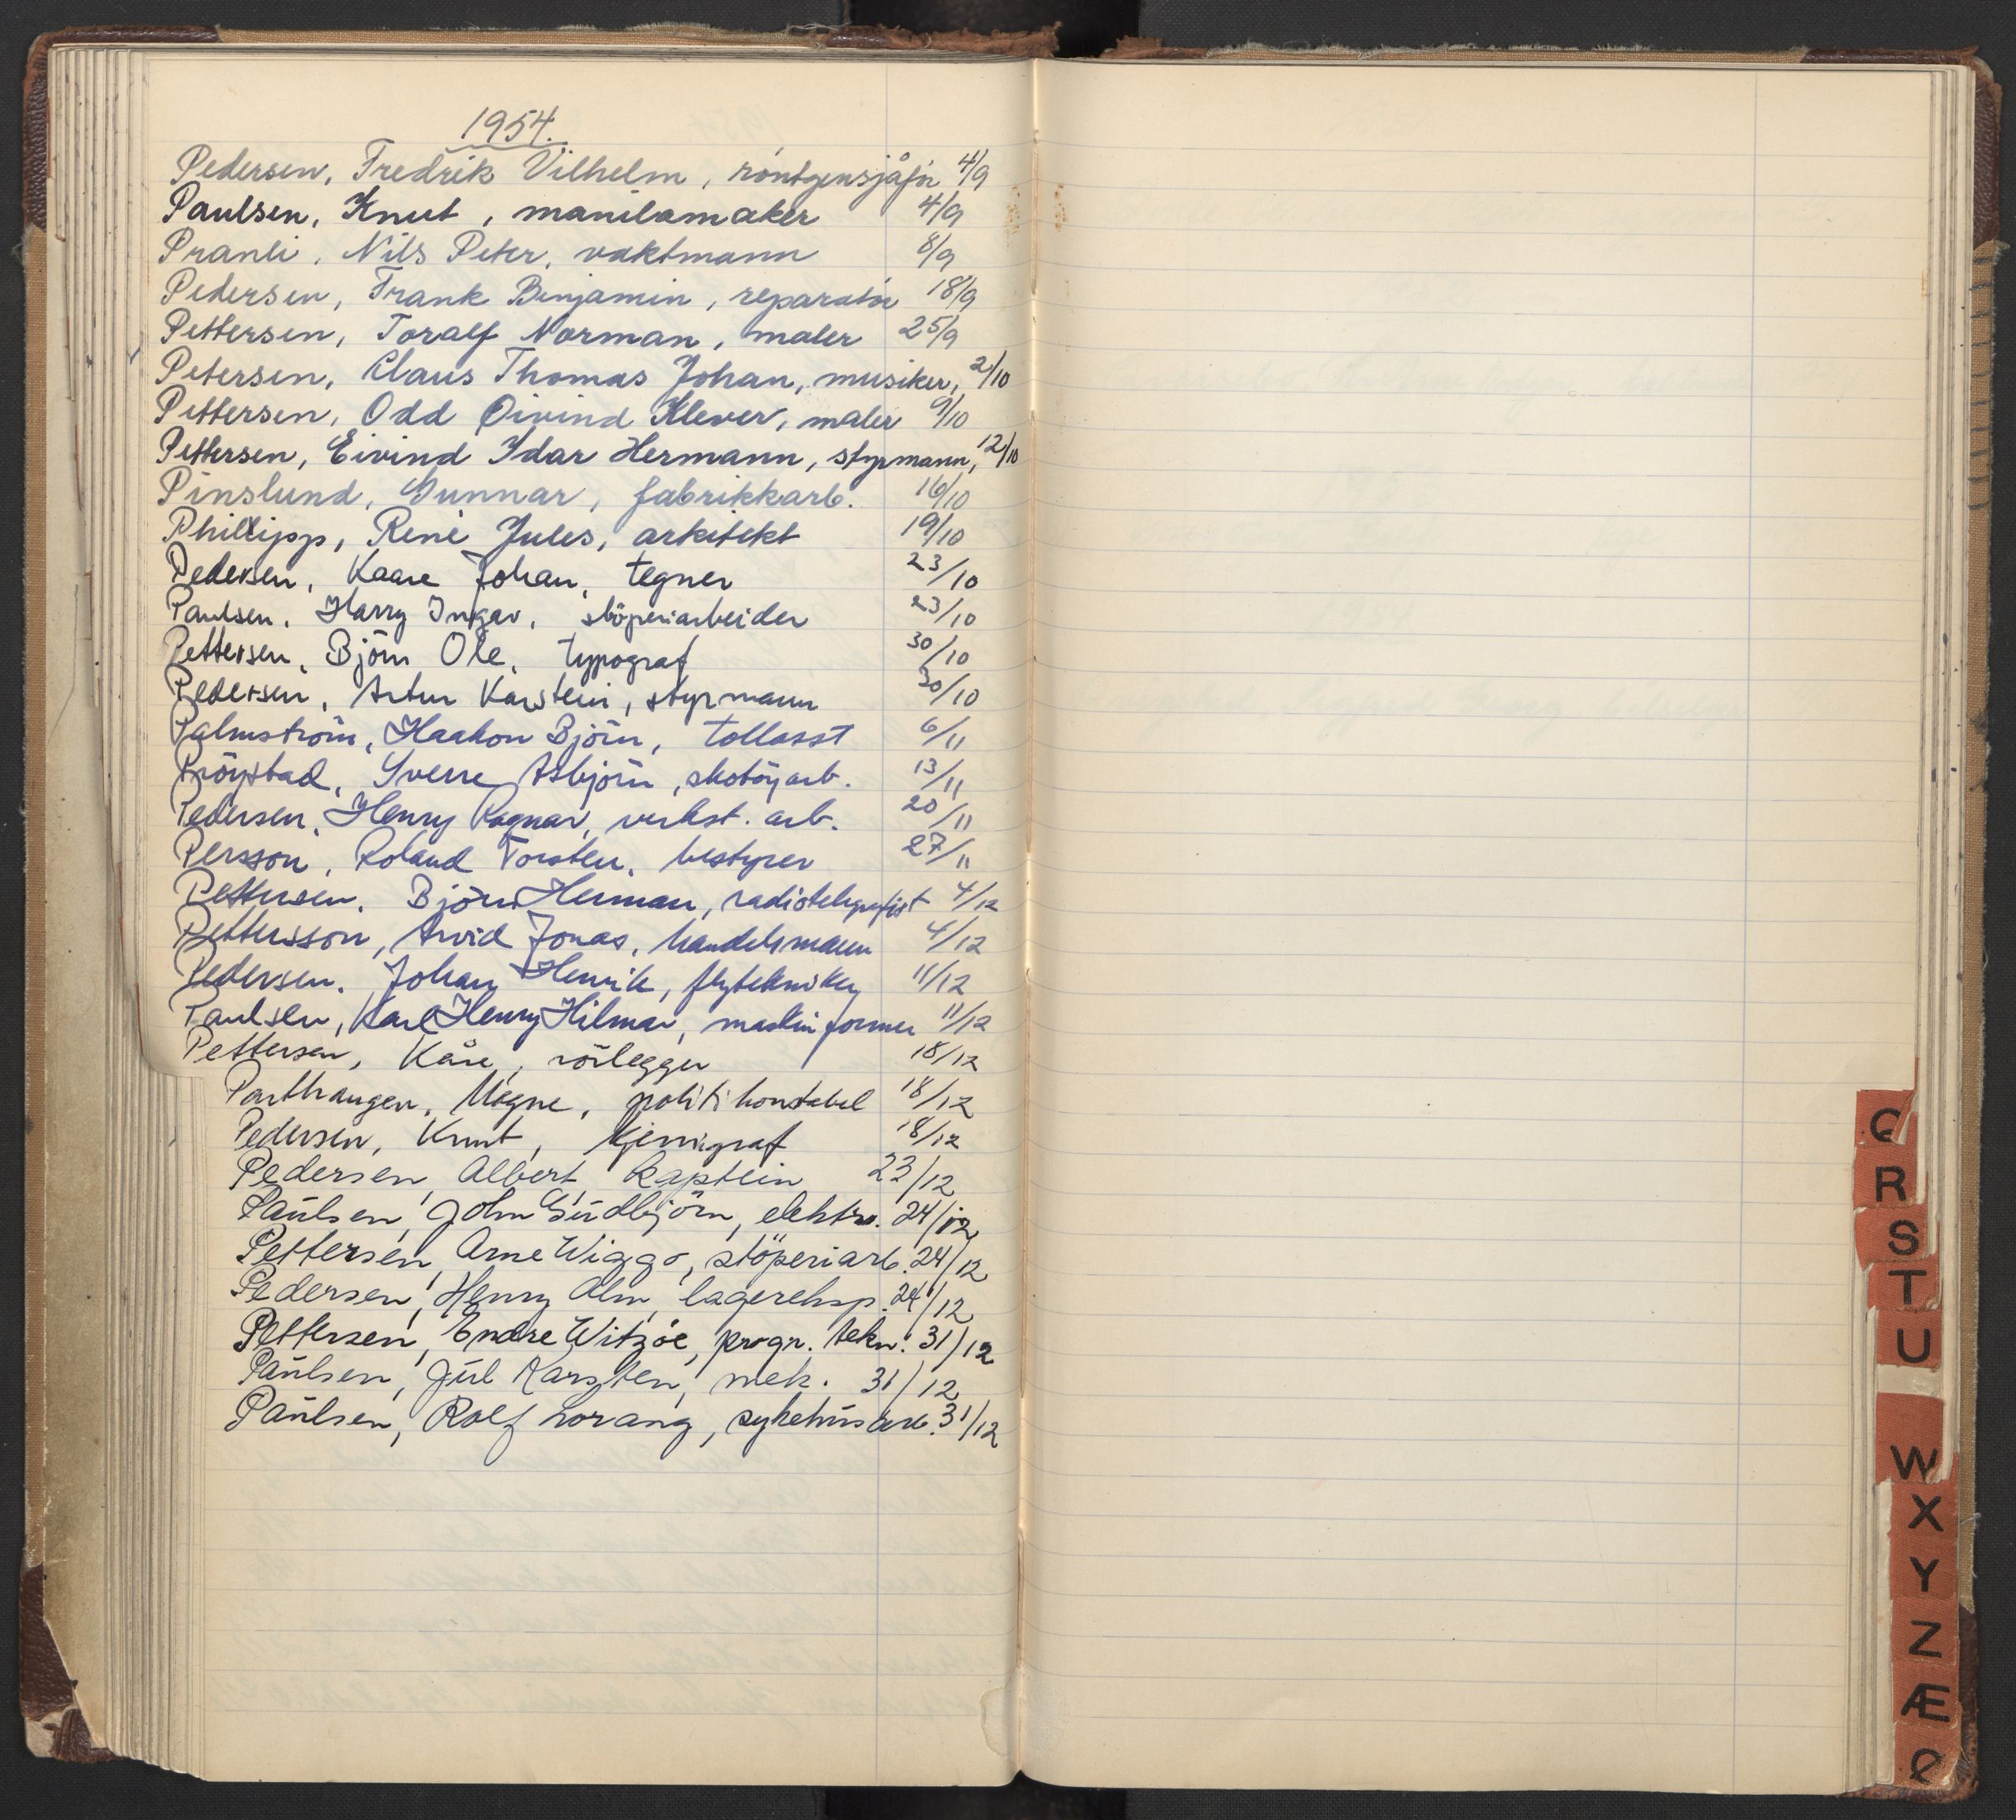 1954.
Pedersen, Fredrik Vilhelm, röntgensjåfør 4/9
Paulsen, Knut, manilamaker 4/9
Pranli, Nils Peter, vaktmann 8/9
Pedersen, Frank Benjamin, reparatör 18/9
Pettersen, Toralf Norman, maler 25/9
Petersen, Claus Thomas Johan, musiker, 2/10
Pettersen, Odd Øivind Klever, maler 9/10
Pettersen, Eivind Ydar Hermann, styrmann, 12/10
Pinslund, Gunnar, fabrikkarb. 16/10
Phillipp, René Jules, arkitekt 19/10
Pedersen, Kaare Johan, tegner 23/10
Paulsen, Harry Ingar, støperiarbeider 23/10
Pettersen, Björn Ole, typograf 30/10
Pedersen, Artur Karstein, styrmann 30/10
Palmström, Haakon Björn, tollasst 6/11
Pröystad, Sverre Asbjörn, skotöyarb. 13/11
Pedersen, Henry Ragnar, verkst. arb. 20/11
Persson, Roland Torsten, bestyrer 27/11
Pettersen, Björn Herman, radiotelegrafist 4/12
Pettersson, Arvid Jonas, handelsmann 4/12
Pedersen, Johan Henrik, flytekniker 11/12
Paulsen, Karl Henry Hilmar, maskinformer 11/12
Pettersen, Kåre, rörlegger 18/12
Parthaugen, Magne, politikonstabel 18/12
Pedersen, Knut, kjemigraf 18/12
Pedersen, Albert, kaptein 23/12
Paulsen, John Gudbjörn, elektro. 24/12
Pettersen, Arne Wiggo, stöperiarb. 24/12
Pedersen, Henry Alm, lagereksp. 24/12
Pettersen, Endre Witzöe, progr. tekn. 31/12
Paulsen, Jul Karsten, mek. 31/12
Paulsen, Rolf Lorang, sykehusarb. 31/12
Q
R
S
T
U
W
X
Y
Z
Æ
Ø